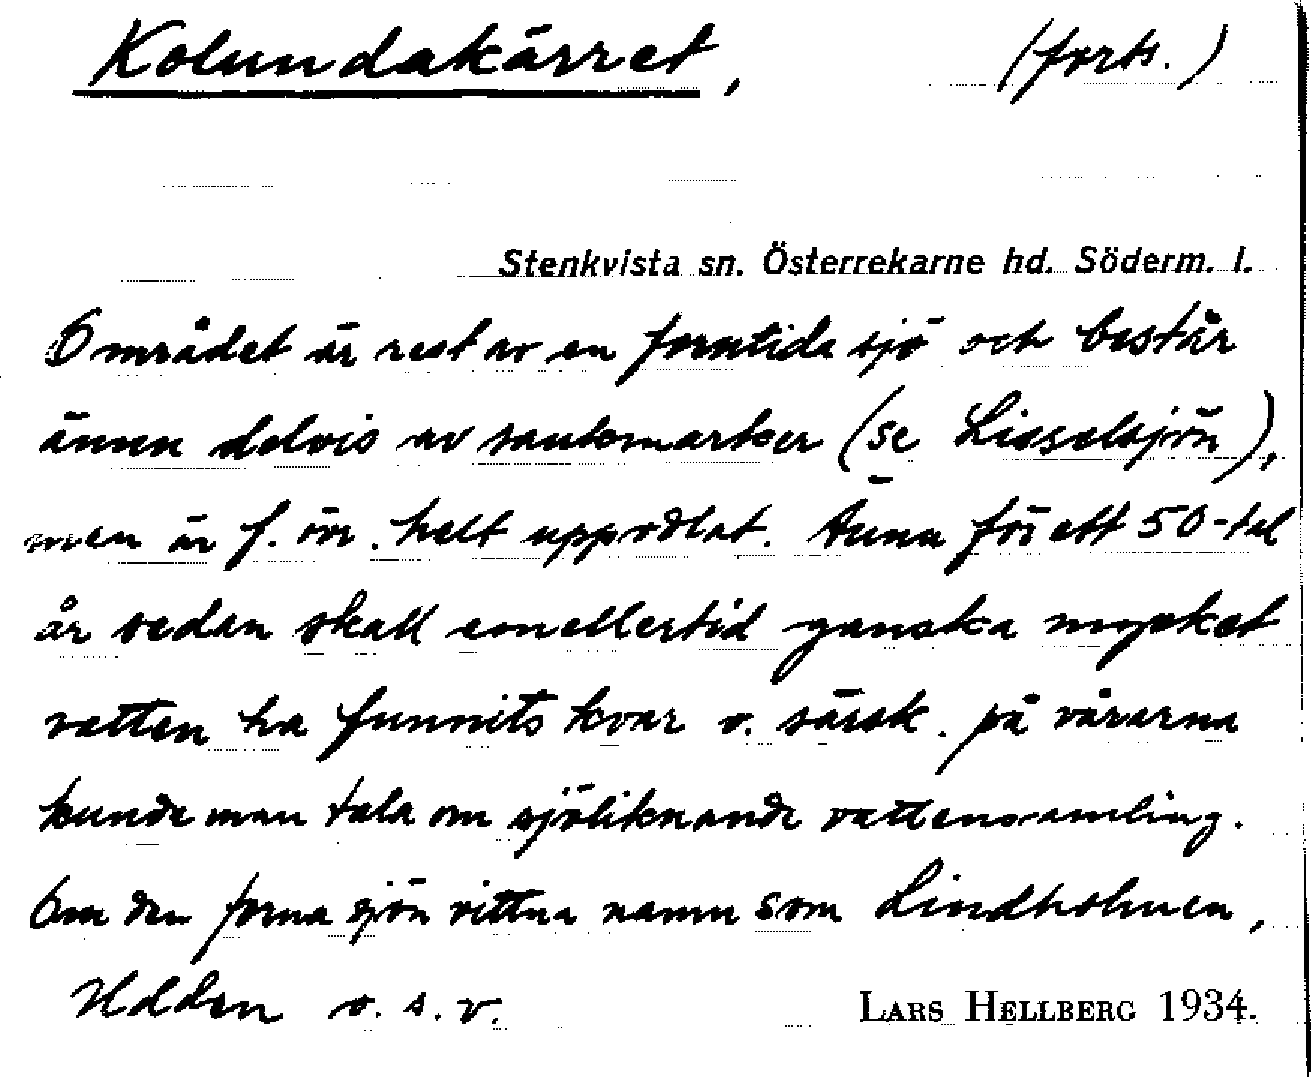 Kolundakärret, (forts.)
Stenkvista sn. Österrekarne hd. Söderm. l.
Området är rest av en forntida sjö och består
ännu delvis av sankmarker (se Lisselsjön),
men är f. ör. helt uppodlat. Ännu för ett 50-tal
år sedan skall emellertid ganska mycket
vatten ha funnits kvar o. särsk. på vårarna
kunde man tala om sjöliknande vattensamling.
Om den forna sjön vittna namn som Lindholmen,
Udden o. s. v. LARS HELLBERG 1934.